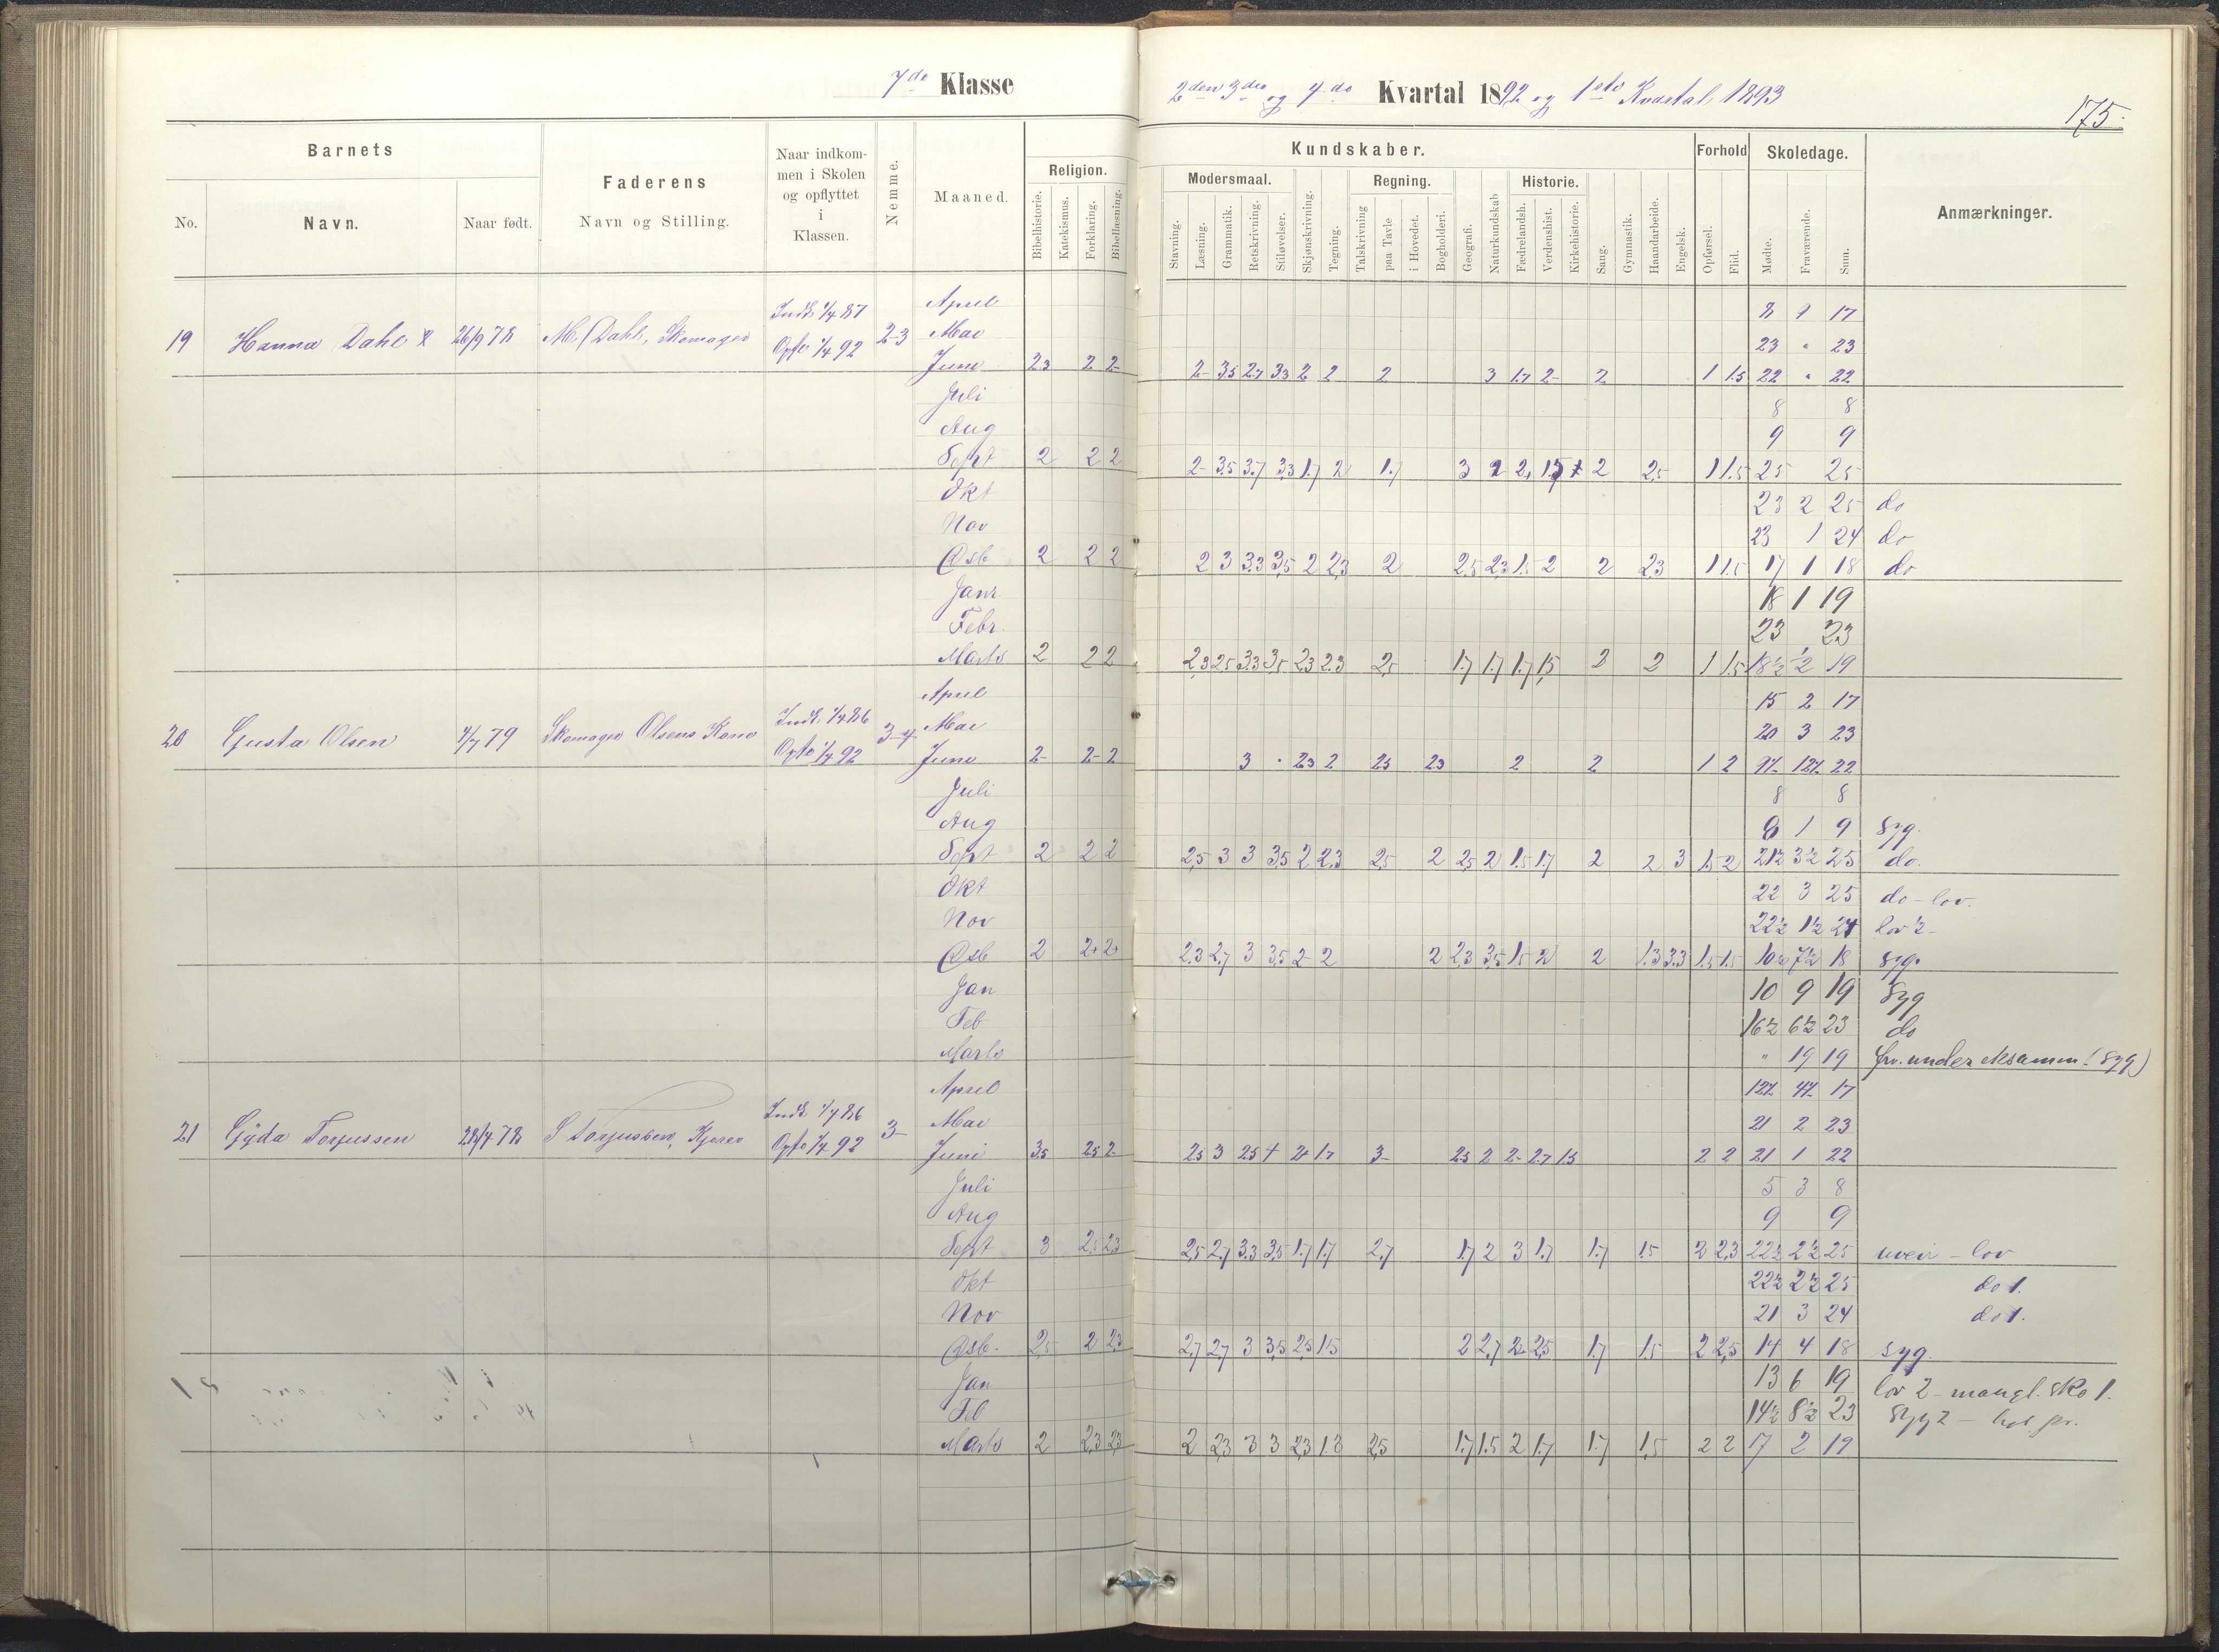 7de Klasse
2den 3die og 4de Kvartal 1892 og 1ste Kvartal 1893
175.
Barnets
Faderens
Naar indkommen i Skolen og opflyttet i Klassen.
Nemme.
Maaned.
Religion.
Kundskaber.
Forhold
Skoledage.
Anmærkninger.
Modersmaal.
Regning.
Historie.
No.
Navn.
Naar født.
Navn og Stilling.
Bibelhistorie.
Katekismus.
Forklaring.
Bibellæsning.
Stavning.
Læsning.
Grammatik.
Retskrivning.
Stiløvelser.
Skjønskrivning.
Tegning.
Talskrivning
paa Tavle
i Hovedet.
Bogholderi.
Geografi.
Naturkundskab
Fædrelandsh.
Verdenshist.
Kirkehistorie.
Sang.
Gymnastik.
Haandarbeide.
Engelsk.
Opførsel.
Flid.
Mødte.
Fraværende.
Sum.
April 8 9 17
19 Hanna Dahl 26/9 78 M. Dahl, Skomager Indt. 1/4 87 Opfl. 1/4 92 2-3 Mai 23 " 23
Juni 2.3 2 2- 2- 3.5 2.7 3.3 2 2 2 3 1.7 2- 2 1 1.5 22 " 22
Juli 8 8
Aug 9 9
Sept 2 2 2 2- 3.5 3.7 3.3 1.7 2 1.7 3 2 2 1.5 2 2.5 1 1.5 25 25
Okt 23 2 25 do
Nov 23 1 24 do
Dsb 2 2 2 2 3 3.3 3.5 2 2.3 2 2.5 2.3 1.5 2 2 2.3 1 1.5 17 1 18 do
Janr 18 1 19
Febr. 23 23
Marts 2 2 2 2.3 2.5 3.3 3.5 2.3 2.3 2.5 1.7 1.7 1.7 1.5 2 2 1 1.5 18½ ½ 19
April 15 2 17
20 Gusta Olsen 4/7 79 Skomager Olsens Kone Indt. 1/4 86 Opfl. 1/4 92 3-4 Mai 20 3 23
Juni 2- 2- 2 3 " 2.3 2 2.5 2.3 2 2 1 2 9½ 12½ 22
Juli 8 8
Aug 8 1 9 Syg.
Sept 2 2 2 2.5 3 3 3.5 2 2.3 2.5 2 2.5 2 1.5 1.7 2 2 3 1.5 2 21½ 3½ 25 do.
Okt 22 3 25 do - lov.
Nov 22½ 1½ 24 lov ½-
Dsb 2 2+ 2+ 2.3 2.7 3 3.5 2- 2 2 2.3 3.5 1.5 2 2 1.3 3.3 1.5 1.5 10½ 7½ 18 syg.
Jan 10 9 19 Syg
Feb 16½ 6½ 23 do
Marts " 19 19 frv. under eksamen (syg)
April 12½ 4½ 17
21 Gyda Torjussen 28/4 78 S Torjussen, Kjører Indt 1/4 86 Opfl. 1/4 92 3- Mai 21 2 23
Juni 3.5 2.5 2- 2.5 3 2.5 4 2+ 1.7 3- 2.5 2 2- 2.7 1.5 2 2 21 1 22
Juli 5 3 8
Aug 9 9
Sept 3 2.5 2.3 2.5 2.7 3.3 3.5 1.7 1.7 2.7 1.7 2 3 1.7 1.7 1.5 2 2.3 22½ 2½ 25 uveir - lov
Okt 22½ 2½ 25 do 1.
Nov 21 3 24 do 1.
Dsb. 2.5 2 2.3 2.7 2.7 3 3.5 2.5 1.5 2 2.7 2- 2.5 1.7 1.5 2 2.5 14 4 18 syg.
Jan 13 6 19 lov 2 - mangl. sko 1.
Feb 14½ 8½ 23 Syg 2 -
Marts 2 2.3 2.3 2 2.3 3 3 2.3 1.3 2.5 1.7 1.5 2 1.7 1.7 1.5 2 2 17 2 19